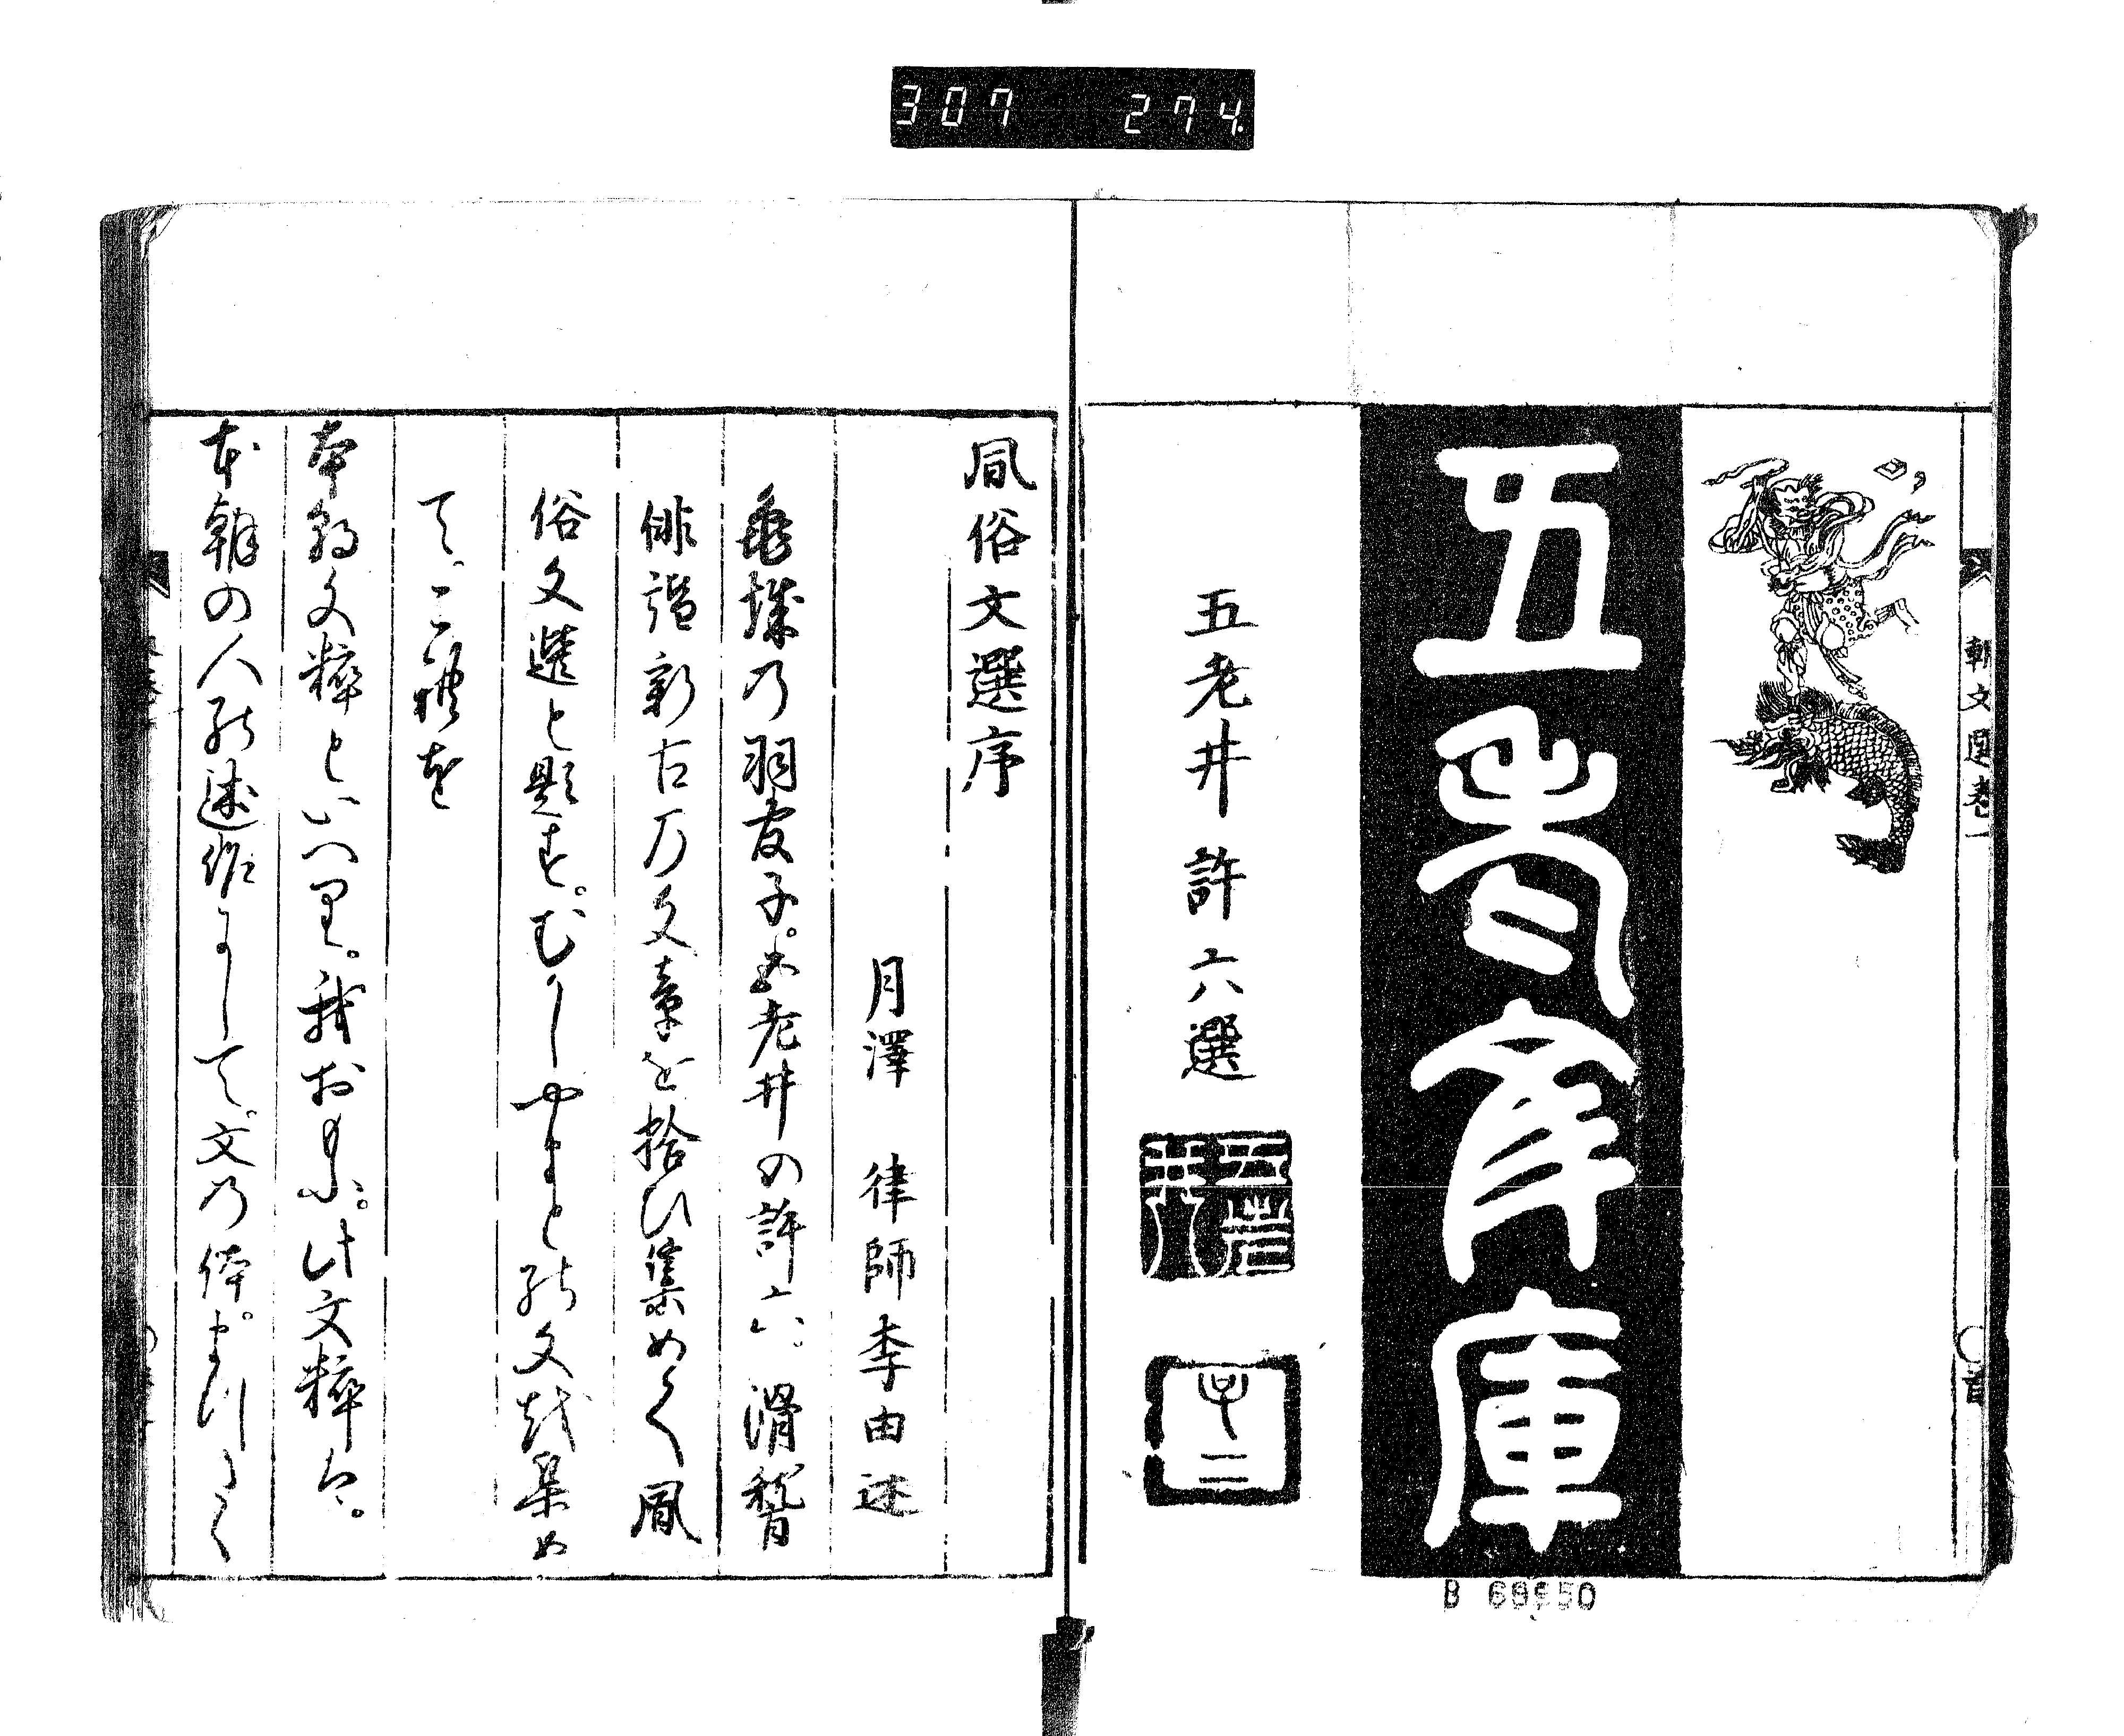 307 274.
朝文選巻一
五老文庫
五老井 許六選
五老井
風俗文選序
月澤 律師李由述
亀城乃羽官子。五老井の許六。滑稽
俳諧新古乃文章を拾ひ集めて風
俗文選と題す。むかしやまと乃文を集め
て。これを
本朝文粋といへり。我おもふに。此文粋ハ。
本朝の人の述作にして。文乃体。まつたく
B 69550